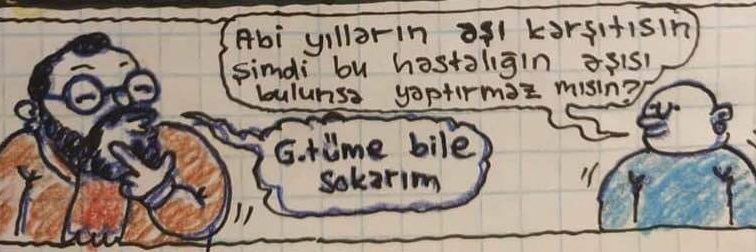 Abi yılların aşı karşıtısın
şimdi bu hastalığın aşısı
bulunsa yaptırmaz mısın?
G.tüme bile
sokarım